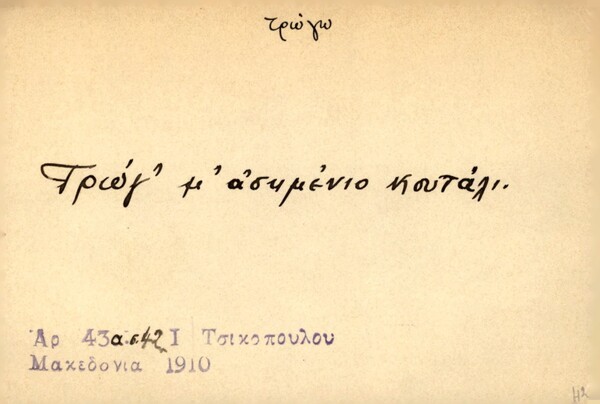 τρώγω
Τρώγ' μ' ἀσημένιο κουτάλι.
Ἀρ 43α σ. 42 Ι Τσικοπουλου
Μακεδονια 1910
42